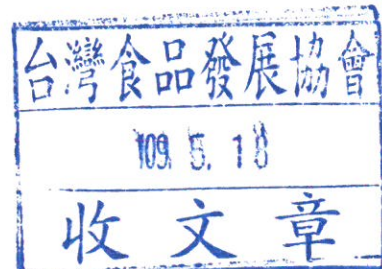 台灣食品發展協會
109. 5. 18
收文章